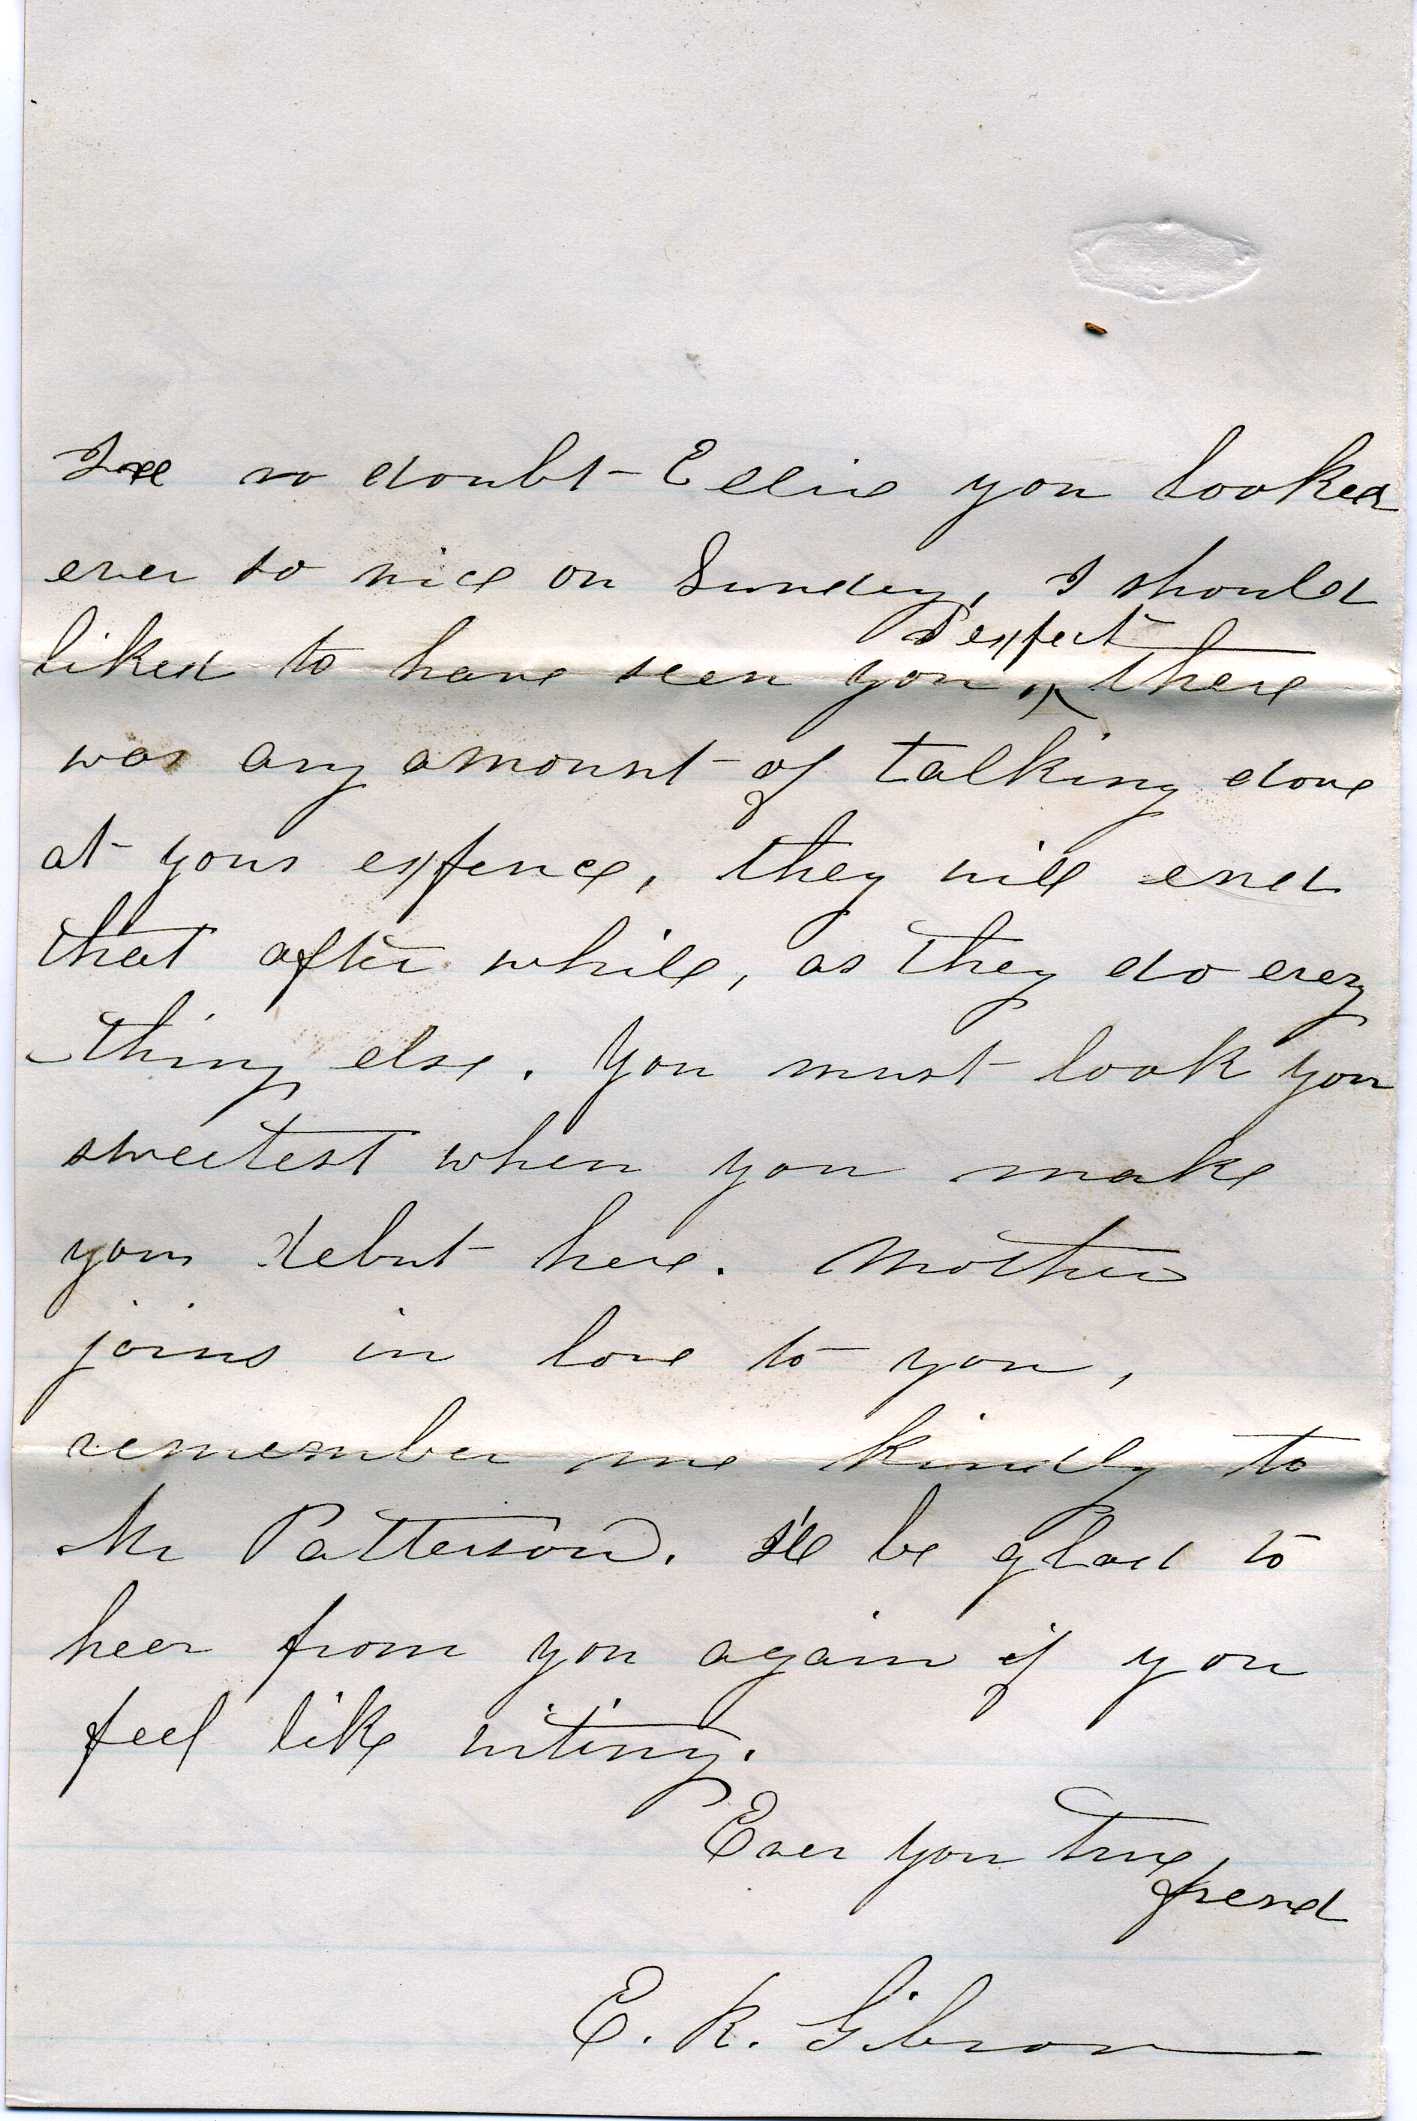 no doubt Ellie you looked
ever so nice on Sunday, I should
I expect
liked to have seen you, ^ there
was any amount of talking done
at your expence, they will end
that after while, as they do every
thing else. You must look your
sweetest when you make
your debut here. Mother
joins in love to you,
remember me kindly to
Mr Patterson. I'll be glad to
hear from you again if you
feel like writing.
Ever your true
friend
E. K. Gibson